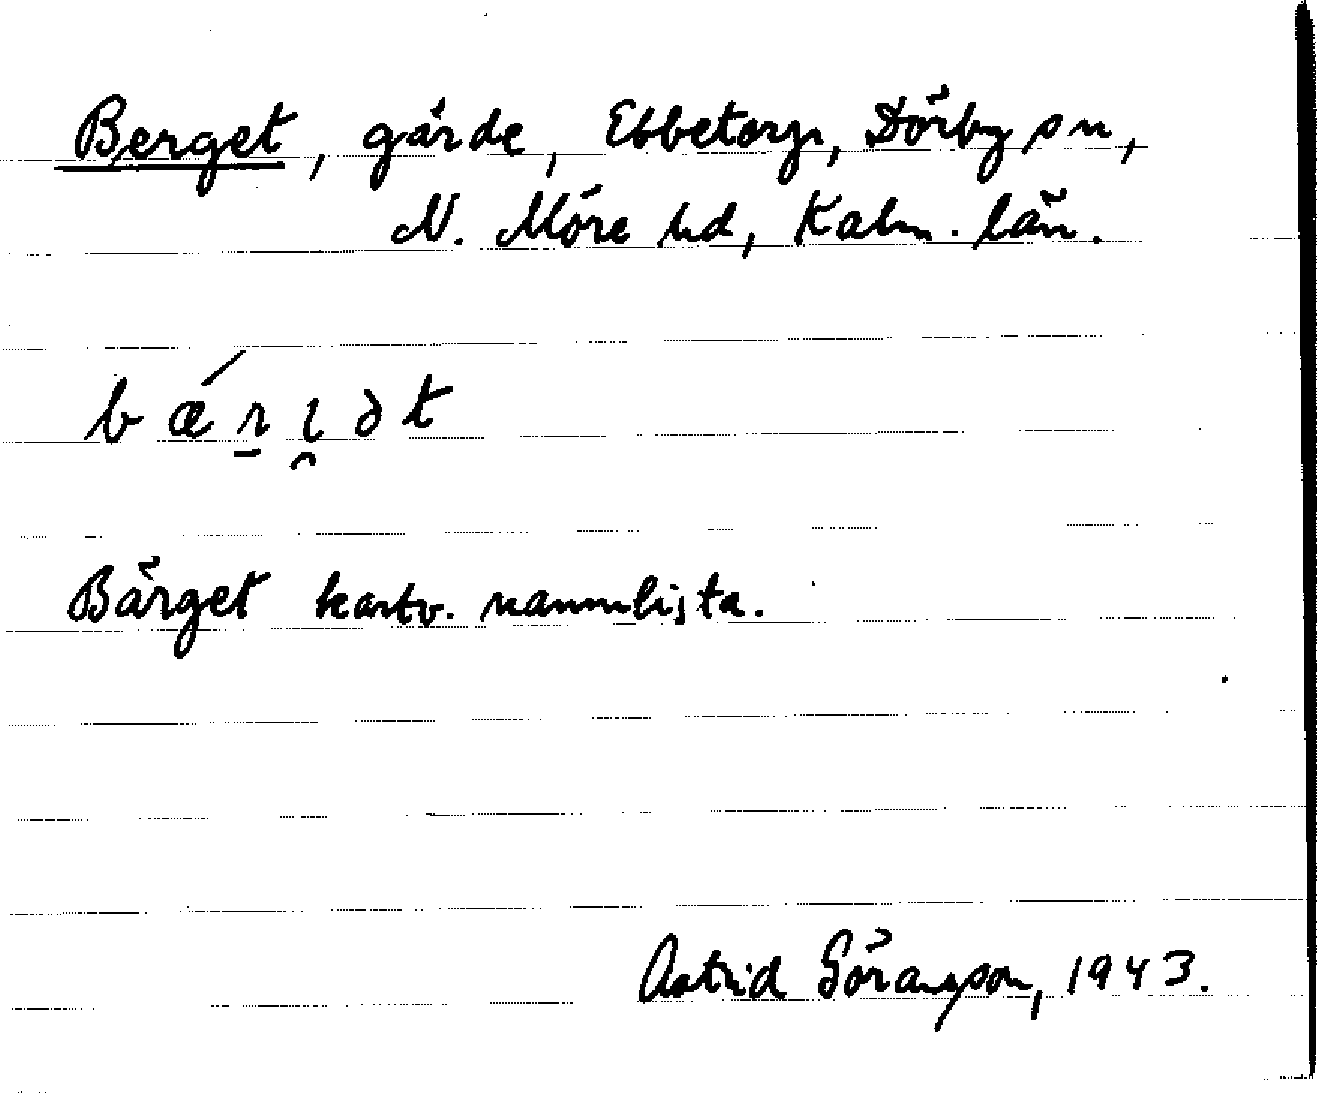 Berget, gärde, Ebbetorp, Dörby sn,
N. Möre hd, Kalm. län.
bǽr̠ı̯ət
Bärget kartv. namnlista.
Astrid Göransson, 1943.